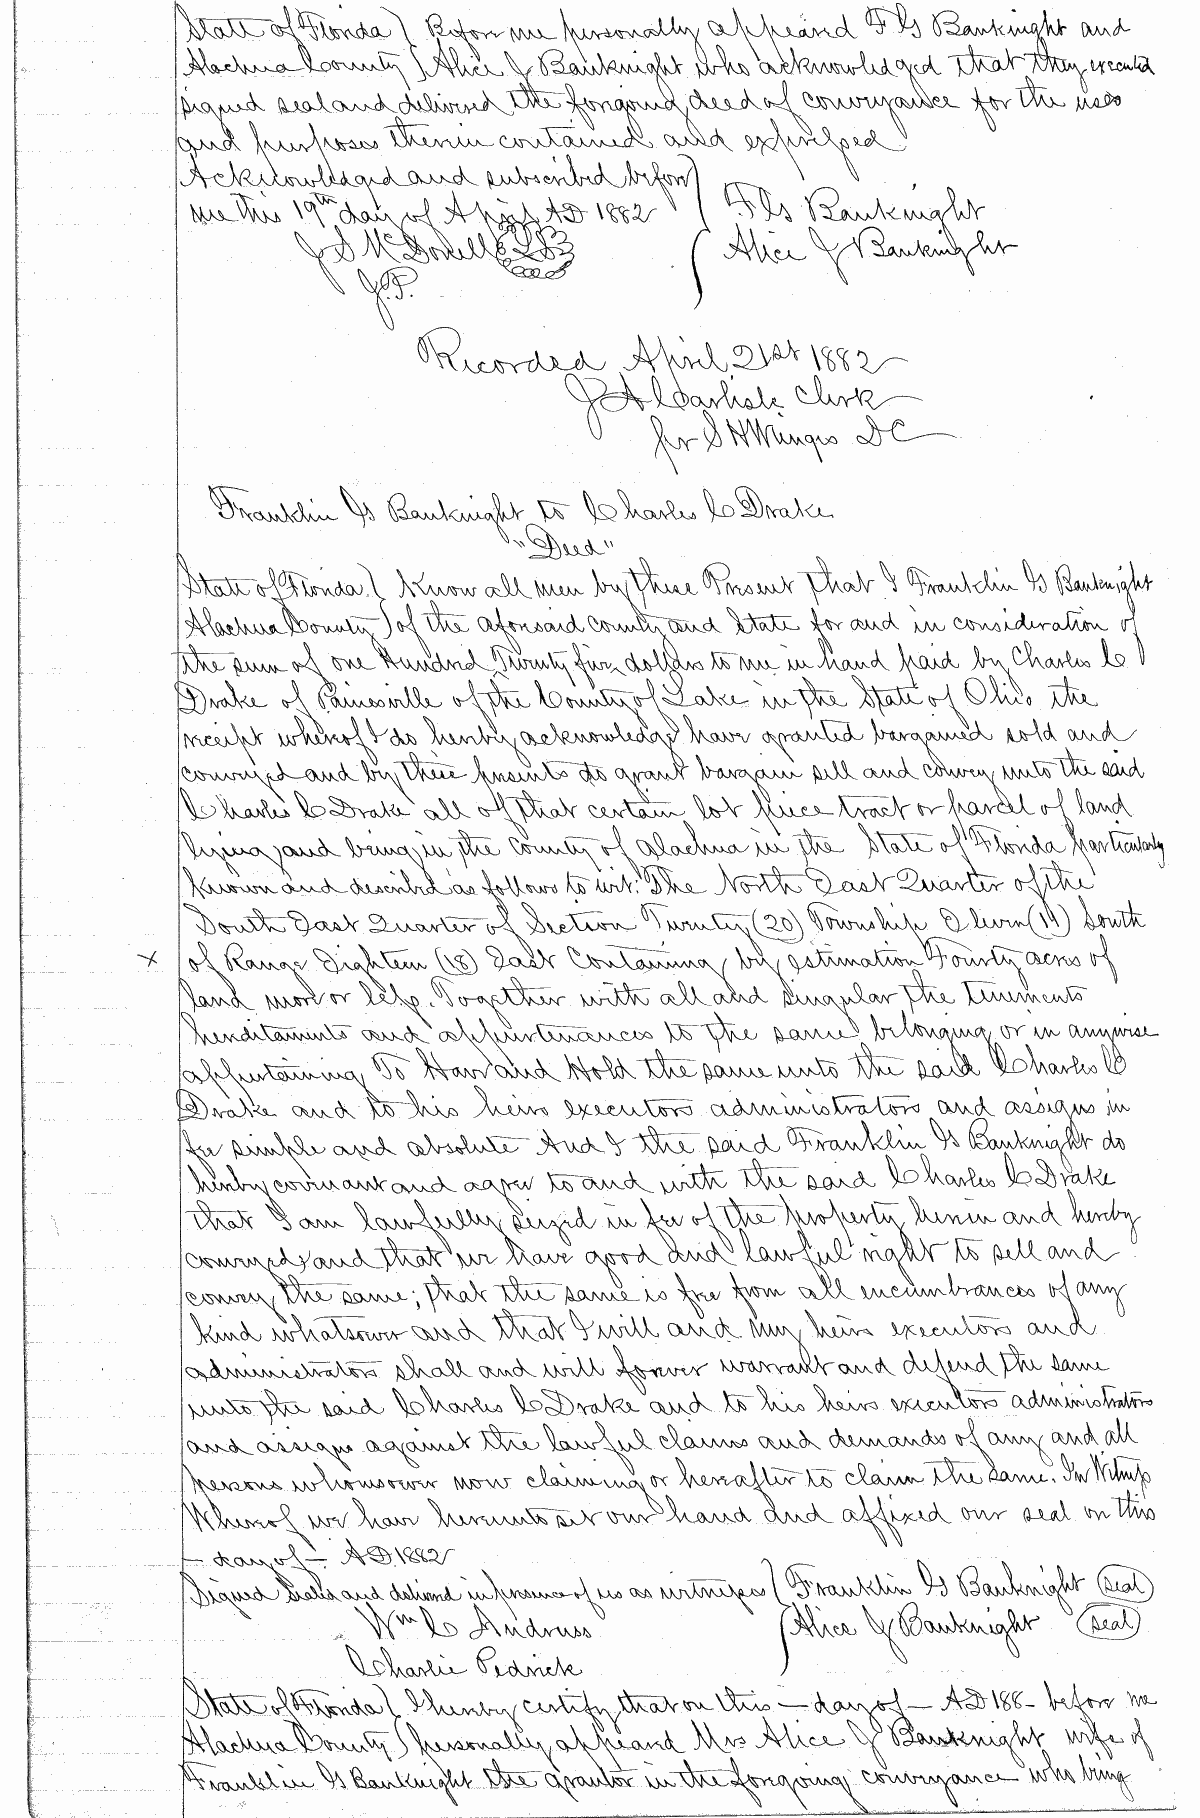 State of Florida ) Before me personally appeared F G Bauknight and
Alachua County ) Alice J Bauknight who acknowledged that they executed
signed seal and delivered the forgoing deed of conveyance for the uses
and purposes therein contained and expressed
Acknowledged and subscribed before )
me this 19th day of April AD 1882 ) F G Bauknight
J S McDonell ( Alice J Bauknight
J.P.
Recorded April 21st 1882
J A Carlisle Clerk
for S H Wienges DC
Franklin G Bauknight to Charles C Drake
"Deed"
State of Florida ) Know all men by these Present that I Franklin G Bauknight
Alachua County ) of the aforesaid county and State for and in consideration of
the sum of one Hundred Twenty five dollars to me in hand paid by Charles C
Drake of Painesville of the County of Lake in the State of Ohio the
receipt whereof I do hereby acknowledge have granted bargained sold and
conveyed and by these presents do grant bargain sell and convey unto the said
Charles C Drake all of that certain lot piece tract or parcel of land
lying and being in the County of Alachua in the State of Florida particularly
known and described as follows to wit: The North East Quarter of the
South East Quarter of Section Twenty (20) Township Eleven (11) South
x of Range Eighteen (18) East Containing by estimation Fourty acres of
land more or less. Together with all and singular the tenements
hereditaments and appurtenances to the same belonging or in anywise
appertaining To Have and Hold the same unto the said Charles C
Drake and to his heirs executors administrators and assigns in
fee simple and absolute And I the said Franklin G Bauknight do
hereby covenant and agree to and with the said Charles C Drake
that I am lawfully seized in fee of the property herein and hereby
conveyed and that we have good and lawful right to sell and
convey the same; that the same is free from all encumbrances of any
kind whatsoever and that I will and my heirs executors and
administrators shall and will forever warrant and defend the same
unto the said Charles C Drake and to his heirs executors administrators
and assigns against the lawful claims and demands of any and all
persons whomsoever now claiming or hereafter to claim the same. In Witness
Whereof we have hereunto set our hand and affixed our seal on this
— day of — AD 1882
Signed Sealed and delivered in presence of us as witness ( Franklin G Bauknight (seal)
Wm C Andruss ( Alice J Bauknight (seal)
Charlie Pedrick
State of Florida ) I hereby certify that on this — day of — AD 188- before me
Alachua County ) personally appeared Mrs Alice J Bauknight wife of
Franklin G Bauknight the grantor in the forgoing conveyance who being